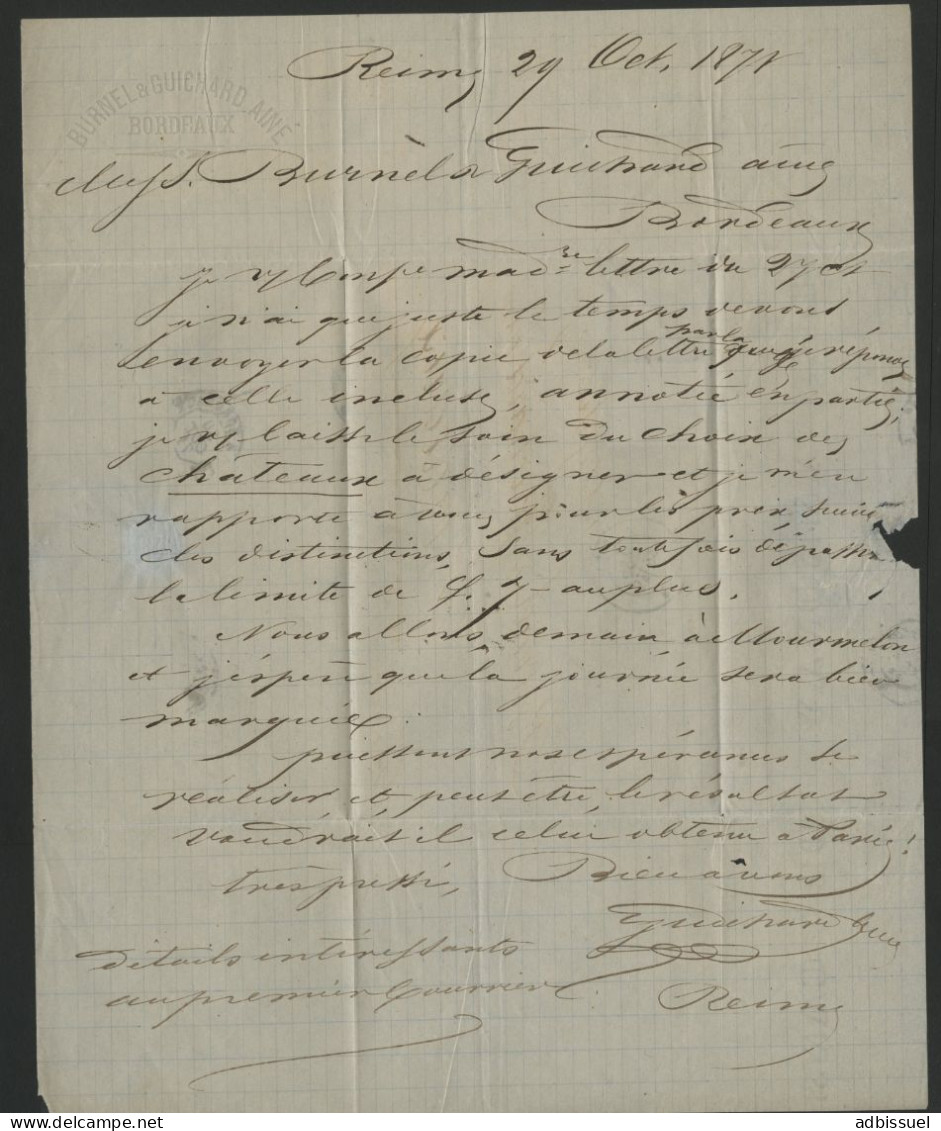 BURNEL & GUICHARD AINÉ
BORDEAUX
Reims 29 Oct. 1871
Mess. Burnel & Guichard ainé
Bordeaux
je vs Conf ma dre lettre du 27 ct
je n'ai que juste le temps de vous
envoyer la copie de la lettre par la quelle je réponds
à celle incluse, annotée en partie;
je vs laisse le soin du choix des
châteaux à désigner et je m'en
rapporte à vous pour les prix, suivt
les distinctions, sans toutefois dépasser
la limite de f. 7 - au plus.
Nous allons, demain, à Mourmelon
et j'espère que la journée sera bien
marquée.
puissent nos espérances se
réaliser et, peut être, le résultat
vaudrait il celui obtenu à Paris!
très pressé, Bien à vous
Guichard ainé
détails intéressants
au premier Courrier
Reims
adbissuel